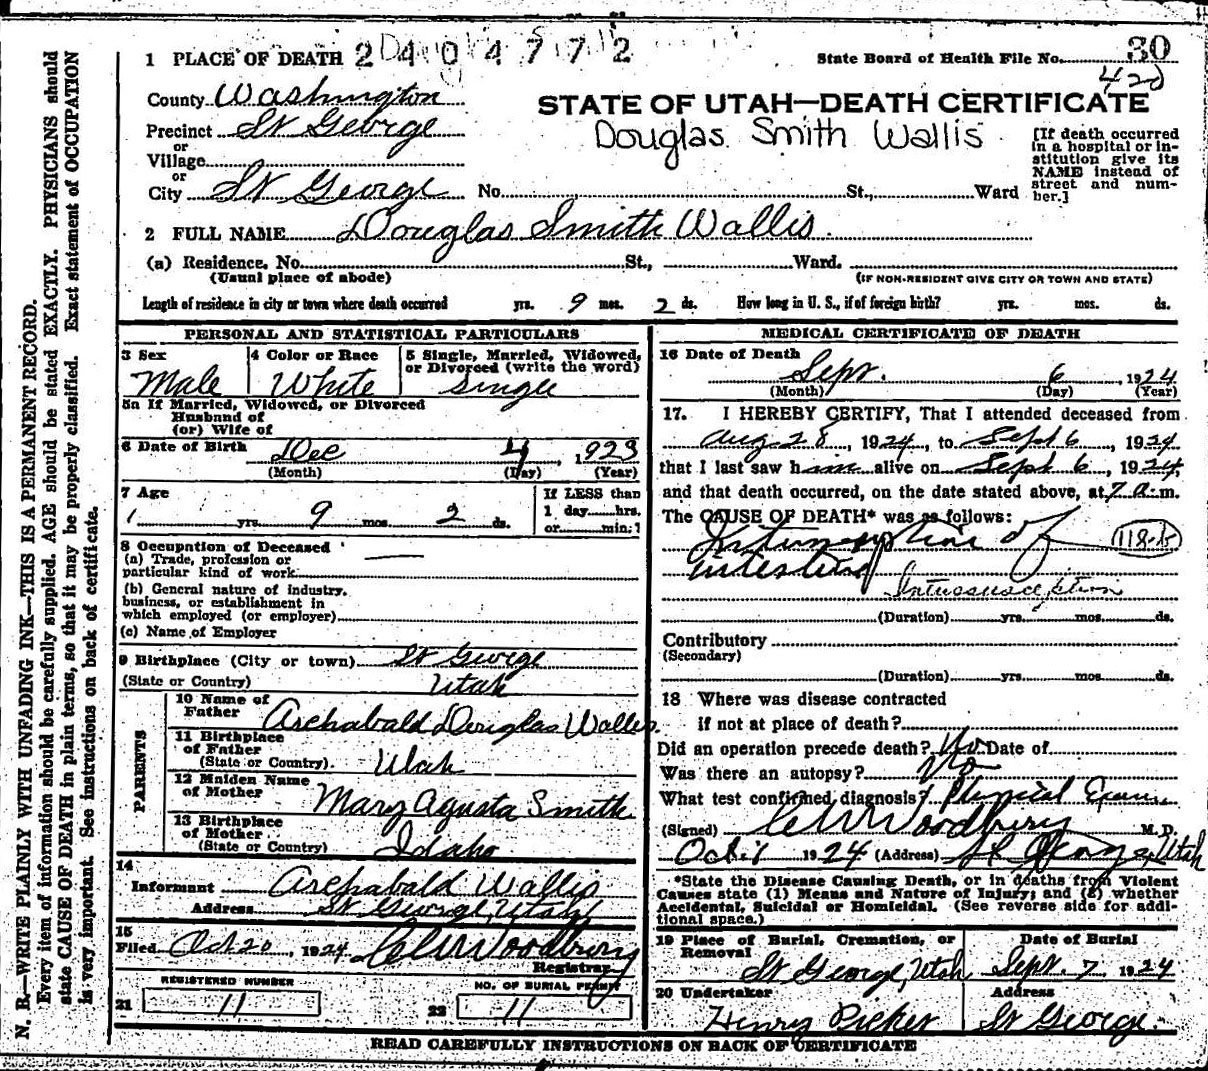 1 PLACE OF DEATH 2404772
State Board of Health File No. 30
420
County Washington
STATE OF UTAH—DEATH CERTIFICATE
Precinct St George
Douglas Smith Wallis
[If death occurred in a hospital or in-
stitution give its NAME instead of street and num-
ber.]
or
Village
or
City St George No. St., Ward
2 FULL NAME Douglas Smith Wallis.
(a) Residence, No. St., Ward.
(Usual place of abode) (IF NON-RESIDENT GIVE CITY OR TOWN AND STATE)
Length of residence in city or town where death occurred yrs. 9 mos. 2 ds. How long in U. S., if of foreign birth? yrs. mos. ds.
PERSONAL AND STATISTICAL PARTICULARS
3 Sex Male
4 Color or Race White
5 Single, Married, Widowed, or Divorced (write the word) Single
5a If Married, Widowed, or Divorced
Husband of
(or) Wife of
6 Date of Birth Dec 4, 1923
(Month) (Day) (Year)
7 Age
yrs. 9 mos. 2 ds.
If LESS than
1 day hrs.
or min.?
8 Occupation of Deceased
(a) Trade, profession or
particular kind of work
(b) General nature of industry,
business, or establishment in
which employed (or employer)
(c) Name of Employer
9 Birthplace (City or town) St George
(State or Country) Utah
PARENTS
10 Name of
Father Archabald Douglas Wallis.
11 Birthplace
of Father
(State or Country). Utah
12 Maiden Name
of Mother Mary Agusta Smith
13 Birthplace
of Mother
(State or Country) Idaho
14
Informant Archabald Wallis
Address St George, Utah
15
Filed Oct 20, 1924. Woodbury
Registrar
REGISTERED NUMBER
21 11
NO. OF BURIAL PERMIT
22 11
MEDICAL CERTIFICATE OF DEATH
16 Date of Death
Sept. 6, 1924
(Month) (Day) (Year)
17. I HEREBY CERTIFY, That I attended deceased from
Aug 28, 1924, to Sept 6, 1924
that I last saw him alive on Sept 6, 1924,
and that death occurred, on the date stated above, at 7 a.m.
The CAUSE OF DEATH* was as follows:
of 118-b
Intussusception
(Duration) yrs. mos. ds.
Contributory
(Secondary)
(Duration) yrs. mos. ds.
18 Where was disease contracted
if not at place of death?
Did an operation precede death? No Date of
Was there an autopsy? No
What test confirmed diagnosis? Physical Exam
(Signed) Woodbury M.D.
Oct. 1 1924 (Address) St George, Utah
*State the Disease Causing Death, or in deaths from Violent
Causes state (1) Means and Nature of Injury; and (2) whether
Accidental, Suicidal or Homicidal. (See reverse side for addi-
tional space.)
19 Place of Burial, Cremation, or
Removal
St George, Utah
Date of Burial
Sept. 7 1924
20 Undertaker
Henry Picker
Address
St George.
READ CAREFULLY INSTRUCTIONS ON BACK OF CERTIFICATE
N. B.—WRITE PLAINLY WITH UNFADING INK—THIS IS A PERMANENT RECORD.
Every item of information should be carefully supplied. AGE should be stated EXACTLY. PHYSICIANS should
state CAUSE OF DEATH in plain terms, so that it may be properly classified. Exact statement of OCCUPATION
is very important. See instructions on back of certificate.